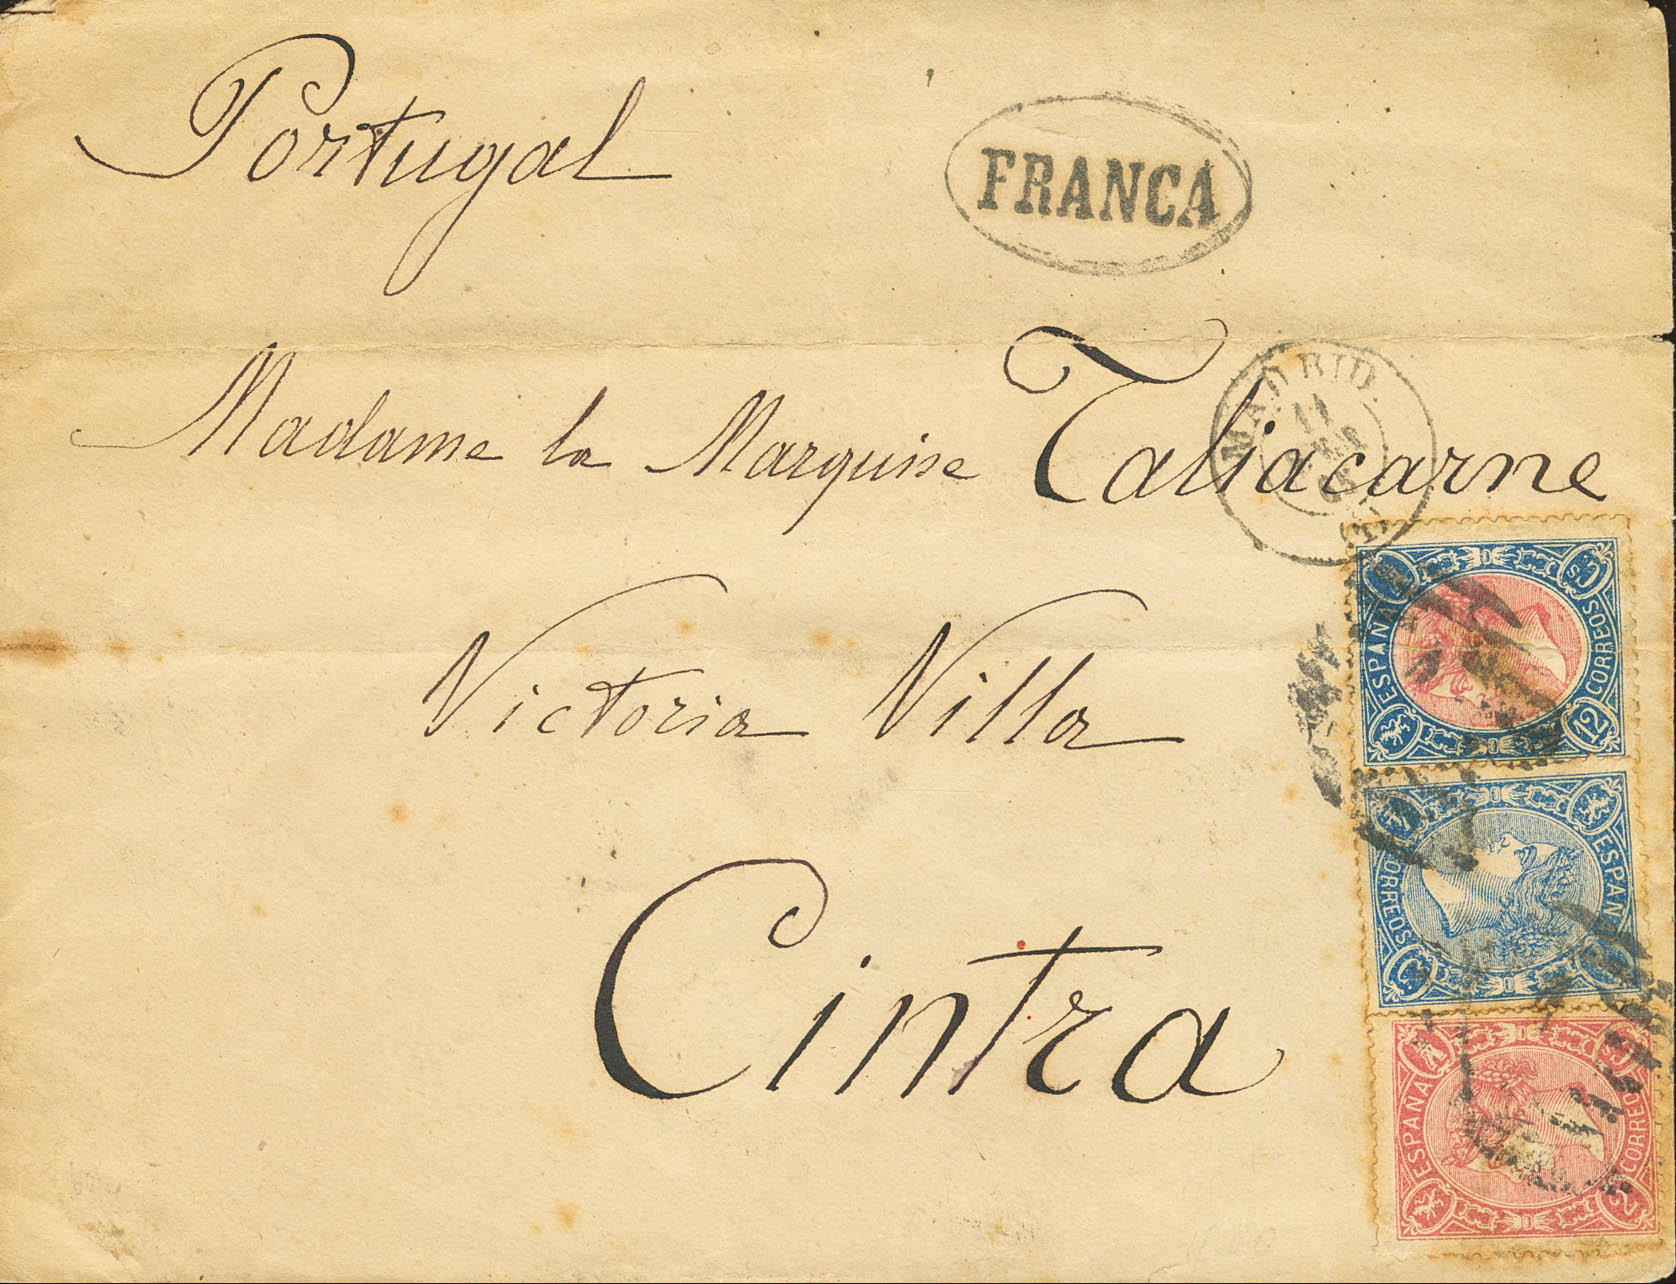 Portugal
FRANCA
Madame la Marquise Taliacarne
MADRID.
Victoria Villa
Cintra
ESPAÑA
12 CORREOS
CORREOS
ESPAÑA
ESPAÑA
2 CORREOS